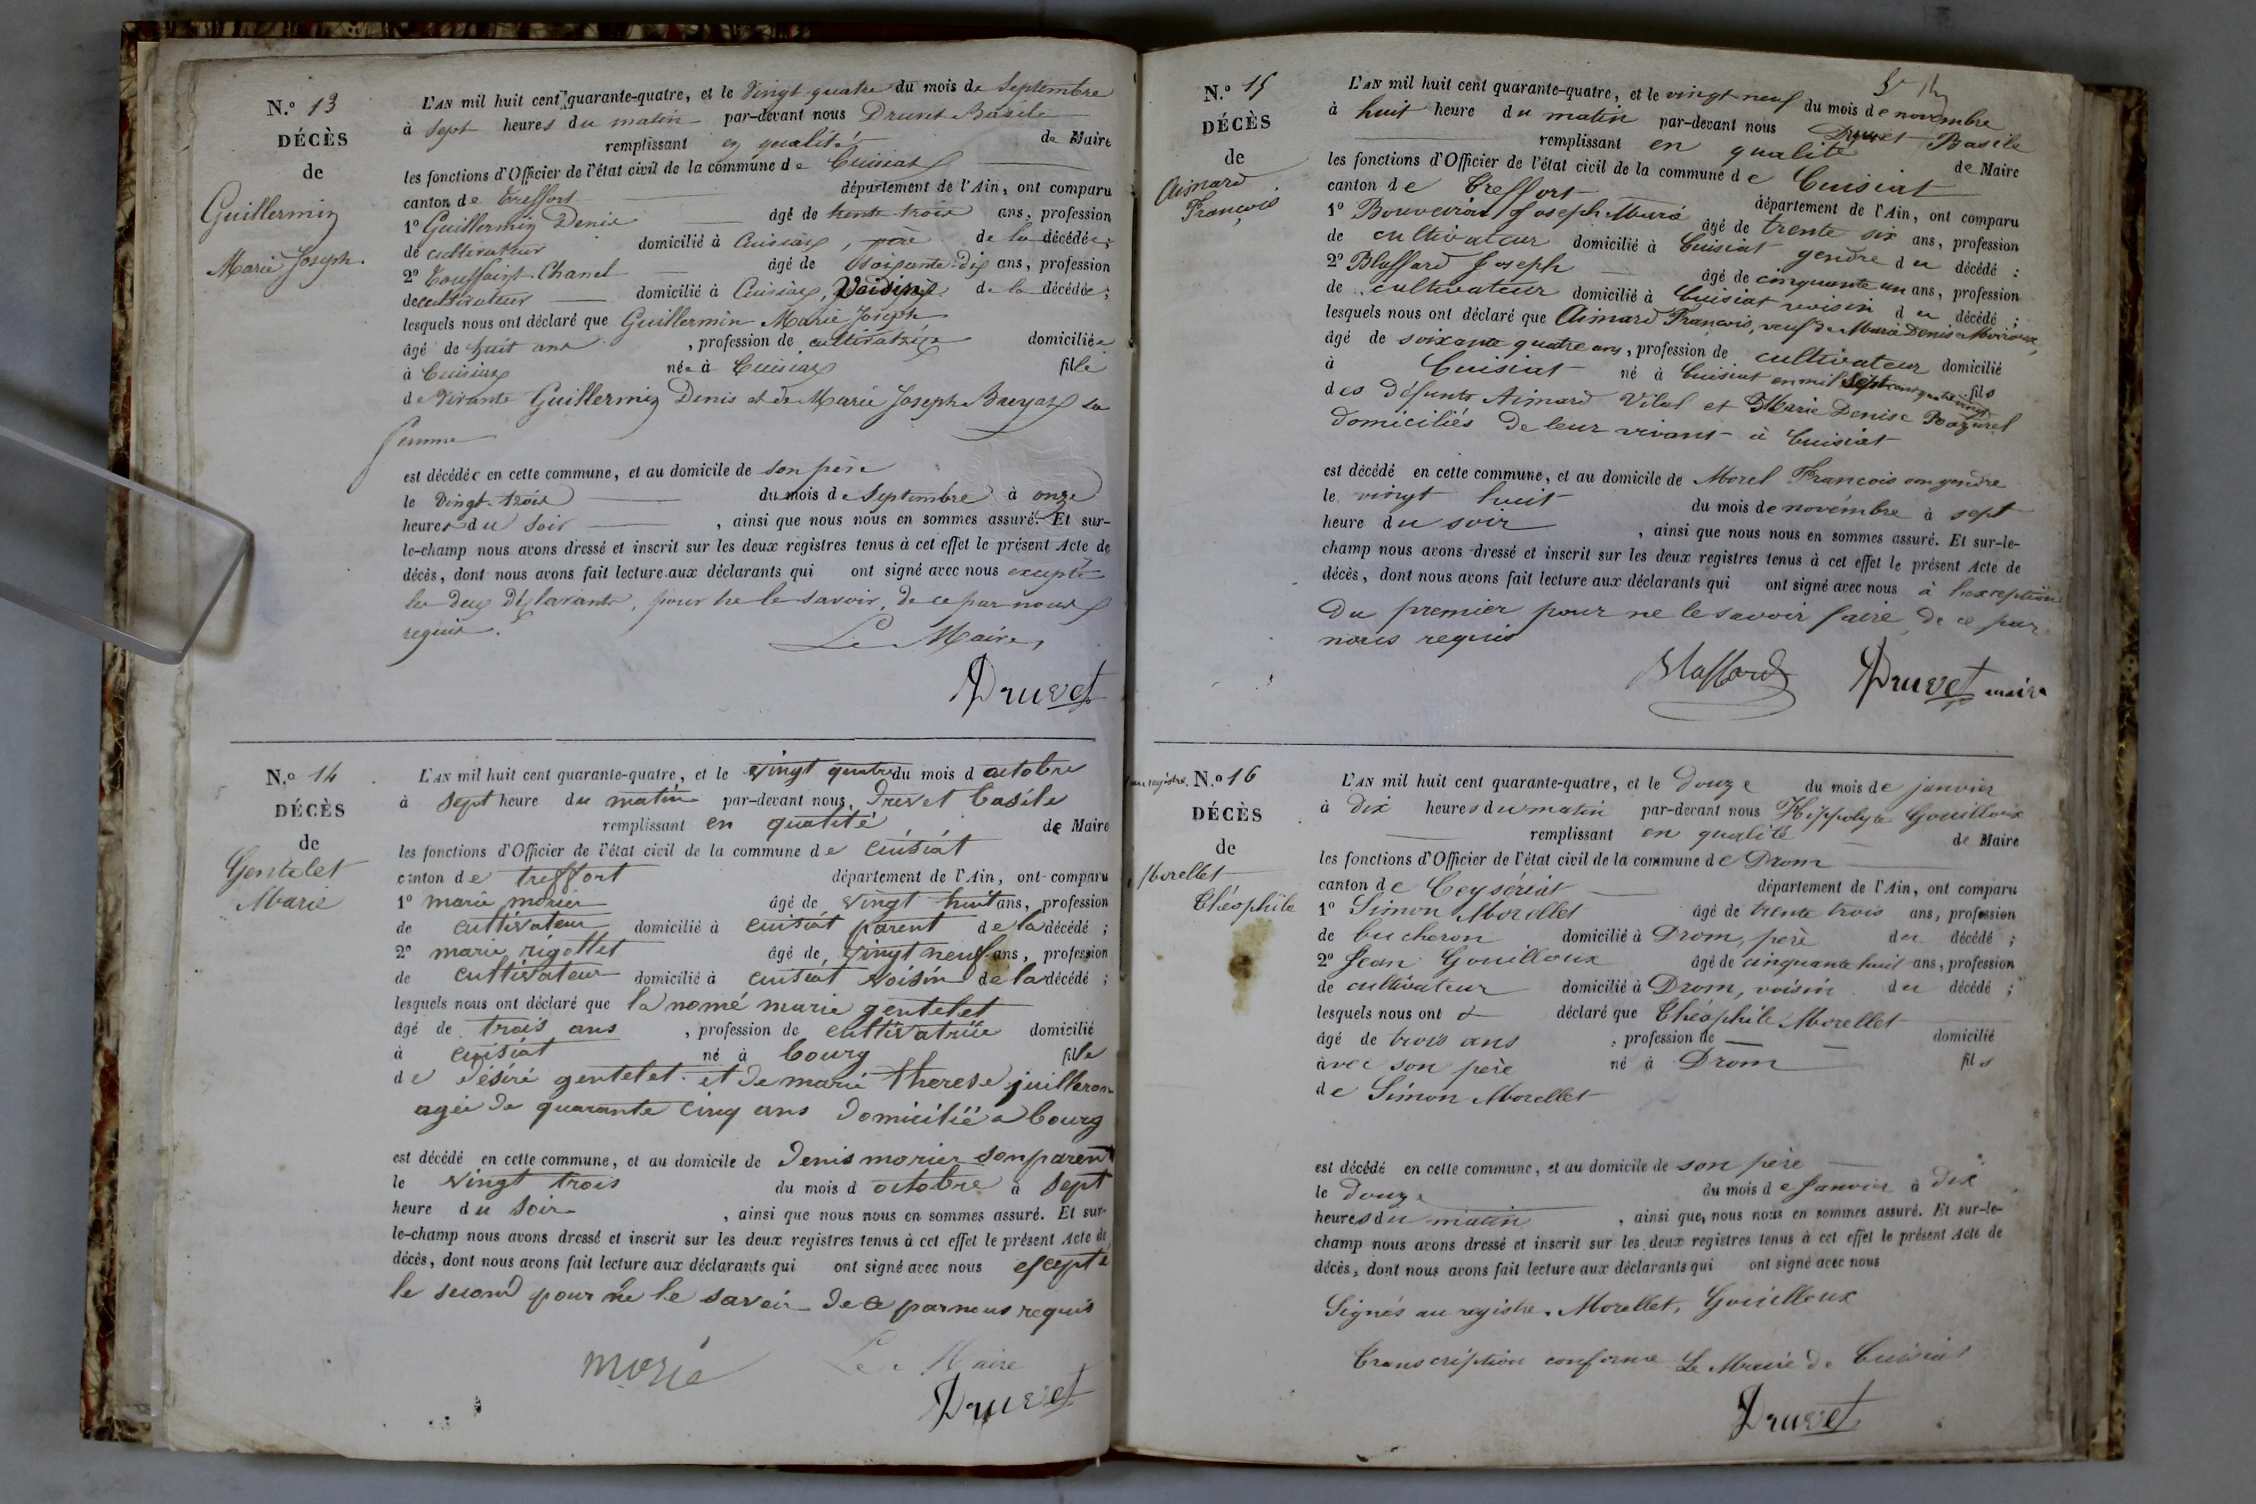 N.º 13
DÉCÈS
de
Guillermin
Marie Joseph.
L'AN mil huit cent quarante-quatre, et le vingt quatre du mois de Septembre
à sept heures du matin par-devant nous Druvet Basile
remplissant en qualité de Maire
les fonctions d'Officier de l'état civil de la commune de Cuisiat
canton de Treffort département de l'Ain, ont comparu
1º Guillermin Denis âgé de trente trois ans, profession
de cultivateur domicilié à Cuisiat, père de la décédée;
2º Toussaint Chanel âgé de soixante-dix ans, profession
de cultivateur domicilié à Cuisiat, Voisin de la décédée;
lesquels nous ont déclaré que Guillermin Marie Joseph
âgé de huit ans, profession de cultivatrice domiciliée
à Cuisiat née à Cuisiat fille
de vivants Guillermin Denis et de Marie Joseph Buyat sa
femme
est décédée en cette commune, et au domicile de son père
le vingt-trois du mois de Septembre à onze
heures du soir, ainsi que nous nous en sommes assuré. Et sur-
le-champ nous avons dressé et inscrit sur les deux registres tenus à cet effet le présent Acte de
décès, dont nous avons fait lecture aux déclarants qui ont signé avec nous excepté
les deux déclarants, pour ne le savoir, de ce par nous
requis.
Le Maire,
Druvet
N.º 14
DÉCÈS
de
Gentelet
Marie
L'AN mil huit cent quarante-quatre, et le vingt quatre du mois d octobre
à sept heure du matin par-devant nous, druvet basile
remplissant en qualité de Maire
les fonctions d'Officier de l'état civil de la commune de cuisiat
canton de treffort département de l'Ain, ont comparu
1º marie morier âgé de vingt huit ans, profession
de cultivateur domicilié à cuisiat parent de la décédé;
2º marie rigottet âgé de, vingt neuf ans, profession
de cultivateur domicilié à cuisiat voisin de la décédé;
lesquels nous ont déclaré que la nomé marie gentelet
âgé de trois ans, profession de cultivatrice domicilié
à cuisiat né à bourg fille
de désiré gentelet et de marie therese juilleron
agée de quarante cinq ans domiciliée a bourg
est décédé en cette commune, et au domicile de denis morier son parent
le vingt trois du mois d octobre à sept
heure du soir, ainsi que nous nous en sommes assuré. Et sur-
le-champ nous avons dressé et inscrit sur les deux registres tenus à cet effet le présent Acte de
décès, dont nous avons fait lecture aux déclarants qui ont signé avec nous excepté
le second pour ne le savoir de ce par nous requis
Le Maire
Druvet
N.º 15
DÉCÈS
de
Aimard
François
L'AN mil huit cent quarante-quatre, et le vingt neuf du mois de novembre
à huit heure du matin par-devant nous Druvet Basile
remplissant en qualité de Maire
les fonctions d'Officier de l'état civil de la commune de Cuisiat
canton de Treffort département de l'Ain, ont comparu
1º Bouveiron Joseph Marie âgé de trente six ans, profession
de cultivateur domicilié à Cuisiat gendre du décédé;
2º Blaffard Joseph âgé de cinquante un ans, profession
de cultivateur domicilié à Cuisiat voisin du décédé;
lesquels nous ont déclaré que Aimard François, veuf de Marie Denise
âgé de soixante quatre ans, profession de cultivateur domicilié
à Cuisiat né à Cuisiat en mil sept cent quatre vingt fils
des défunts Aimard Vital et Marie Denise
domiciliés de leur vivant à Cuisiat
est décédé en cette commune, et au domicile de Morel François son gendre
le vingt huit du mois de novembre à sept
heure du soir, ainsi que nous nous en sommes assuré. Et sur-le-
champ nous avons dressé et inscrit sur les deux registres tenus à cet effet le présent Acte de
décès, dont nous avons fait lecture aux déclarants qui ont signé avec nous à l'exception
du premier pour ne le savoir faire, de ce par
nous requis
Blaffard Druvet maire
registre. N.º 16
DÉCÈS
de
Morellet
Théophile
L'AN mil huit cent quarante-quatre, et le douze du mois de janvier
à dix heures du matin par-devant nous Hippolyte Gouilloux
remplissant en qualité de Maire
les fonctions d'Officier de l'état civil de la commune de Drom
canton de Ceyzériat département de l'Ain, ont comparu
1º Simon Morellet âgé de trente trois ans, profession
de bucheron domicilié à Drom, père du décédé;
2º Jean Gouilloux âgé de cinquante huit ans, profession
de cultivateur domicilié à Drom, voisin du décédé;
lesquels nous ont déclaré que Théophile Morellet
âgé de trois ans, profession de domicilié
avec son père né à Drom fils
de Simon Morellet
est décédé en cette commune, et au domicile de son père
le douze du mois de janvier à dix
heures du matin, ainsi que, nous nous en sommes assuré. Et sur-le-
champ nous avons dressé et inscrit sur les deux registres tenus à cet effet le présent Acte de
décès, dont nous avons fait lecture aux déclarants qui ont signé avec nous
Signés au registre. Morellet, Gouilloux
Transcription conforme Le Maire de Cuisiat
Druvet